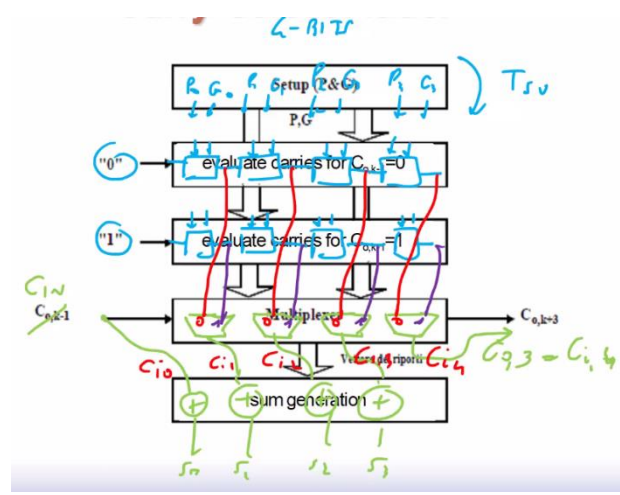 4-BITS
Setup (P&G)
P0 G0 P1 G1 P2 G2 P3 G3
TSU
P,G
"0"
evaluate carries for Co,k-1=0
"1"
evaluate carries for Co,k-1=1
CIN
Co,k-1
Multiplexer
0 1 0 1 0 1 0 1
Co,k+3
Vettore dei riporti
Ci0 Ci1 Ci2 Ci3 Ci4
Co,3 = Ci,4
sum generation
+ + + +
S0 S1 S2 S3